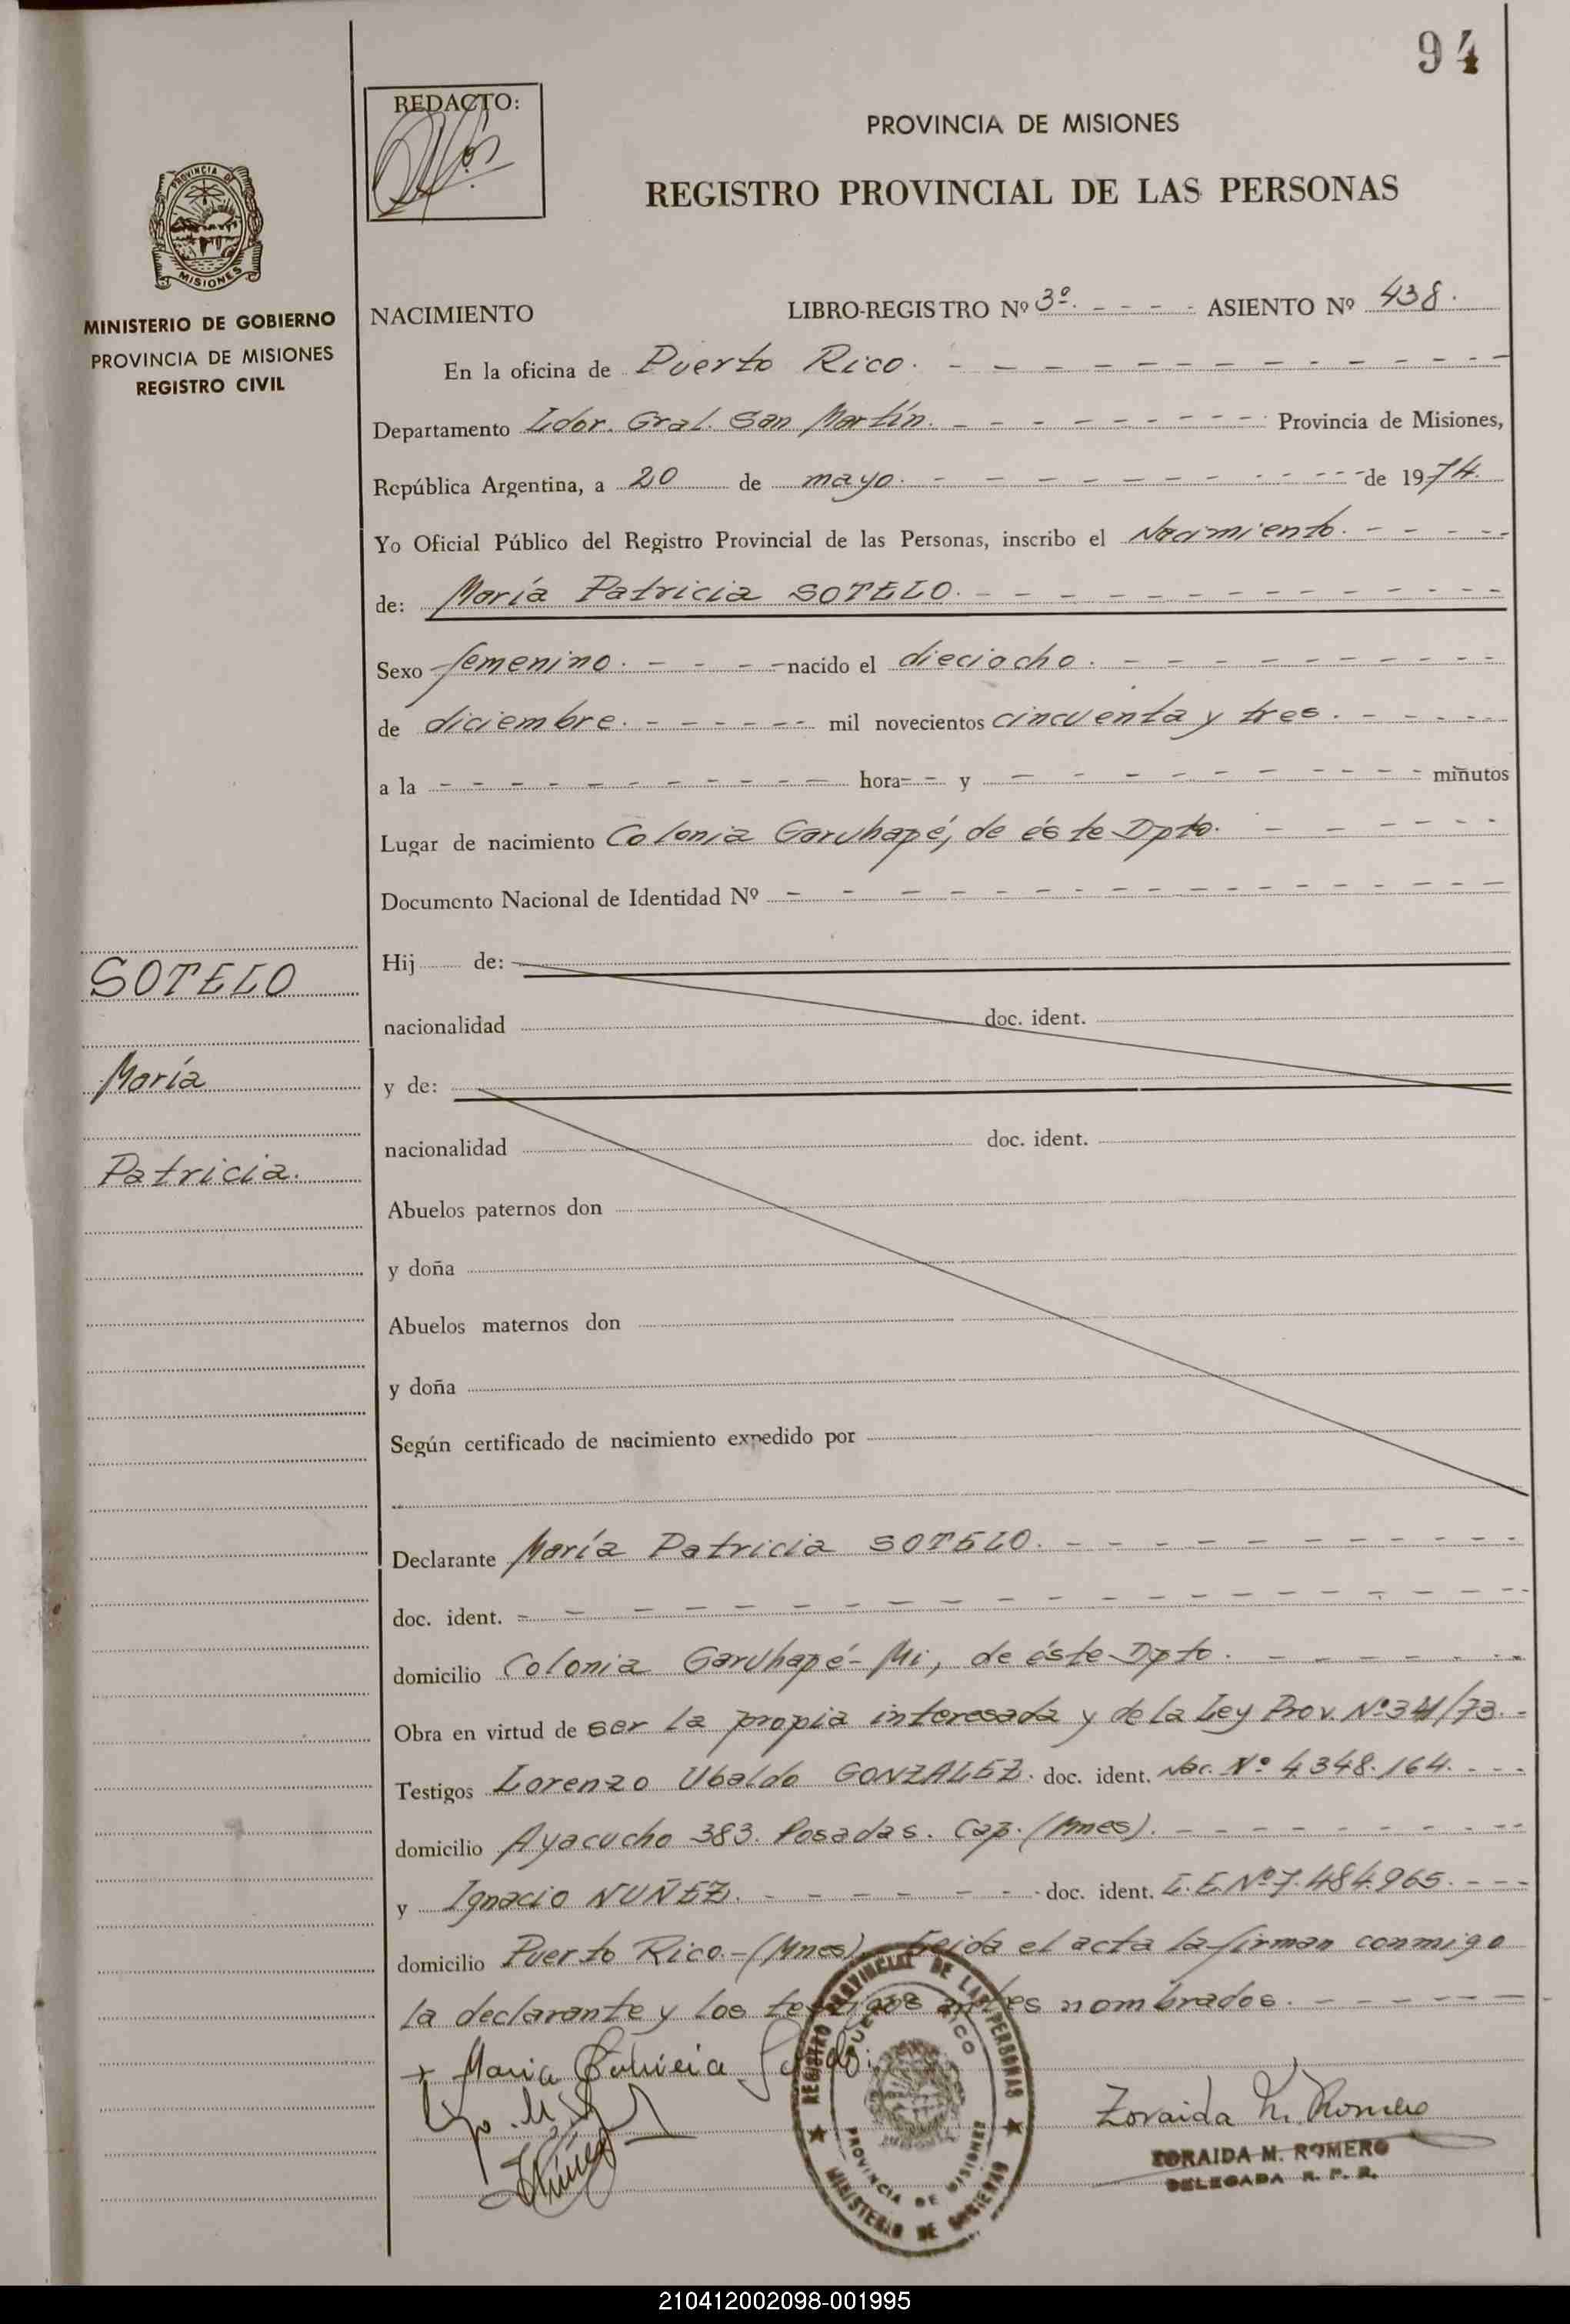 94
REDACTO:
PROVINCIA DE MISIONES
REGISTRO PROVINCIAL DE LAS PERSONAS
PROVINCIA DE
MISIONES
MINISTERIO DE GOBIERNO
PROVINCIA DE MISIONES
REGISTRO CIVIL
NACIMIENTO LIBRO-REGISTRO Nº 3º. - - - - ASIENTO Nº 438.
En la oficina de Puerto Rico.
Departamento Ldor. Gral. San Martín. Provincia de Misiones,
República Argentina, a 20 de mayo. de 1974.
Yo Oficial Público del Registro Provincial de las Personas, inscribo el Nacimiento.
de: María Patricia SOTELO.
Sexo femenino. nacido el dieciocho.
de diciembre. mil novecientos cincuenta y tres.
a la hora y minutos
Lugar de nacimiento Colonia Garuhapé, de éste Dpto.
Documento Nacional de Identidad Nº
Hij de:
SOTELO
nacionalidad doc. ident.
María
y de:
nacionalidad doc. ident.
Patricia.
Abuelos paternos don
y doña
Abuelos maternos don
y doña
Según certificado de nacimiento expedido por
Declarante María Patricia SOTELO.
doc. ident.
domicilio Colonia Garuhapé-Mi, de éste Dpto.
Obra en virtud de ser la propia interesada y de la Ley Prov. Nº 341/73.
Testigos Lorenzo Ubaldo GONZALEZ. doc. ident. Nac. Nº 4.348.164.
domicilio Ayacucho 383. Posadas. Cap. (Mnes).
y Ignacio NUÑEZ. doc. ident. L.E.Nº 7.484.965.
domicilio Puerto Rico.-(Mnes). Leída el acta la firman conmigo
la declarante y los testigos antes nombrados.
+ Maria Patricia Sotelo
Zoraida M. Romero
ZORAIDA M. ROMERO
DELEGADA R. P. P.
REGISTRO PROVINCIAL DE LAS PERSONAS
PUERTO RICO
PROVINCIA DE MISIONES
MINISTERIO DE GOBIERNO
210412002098-001995